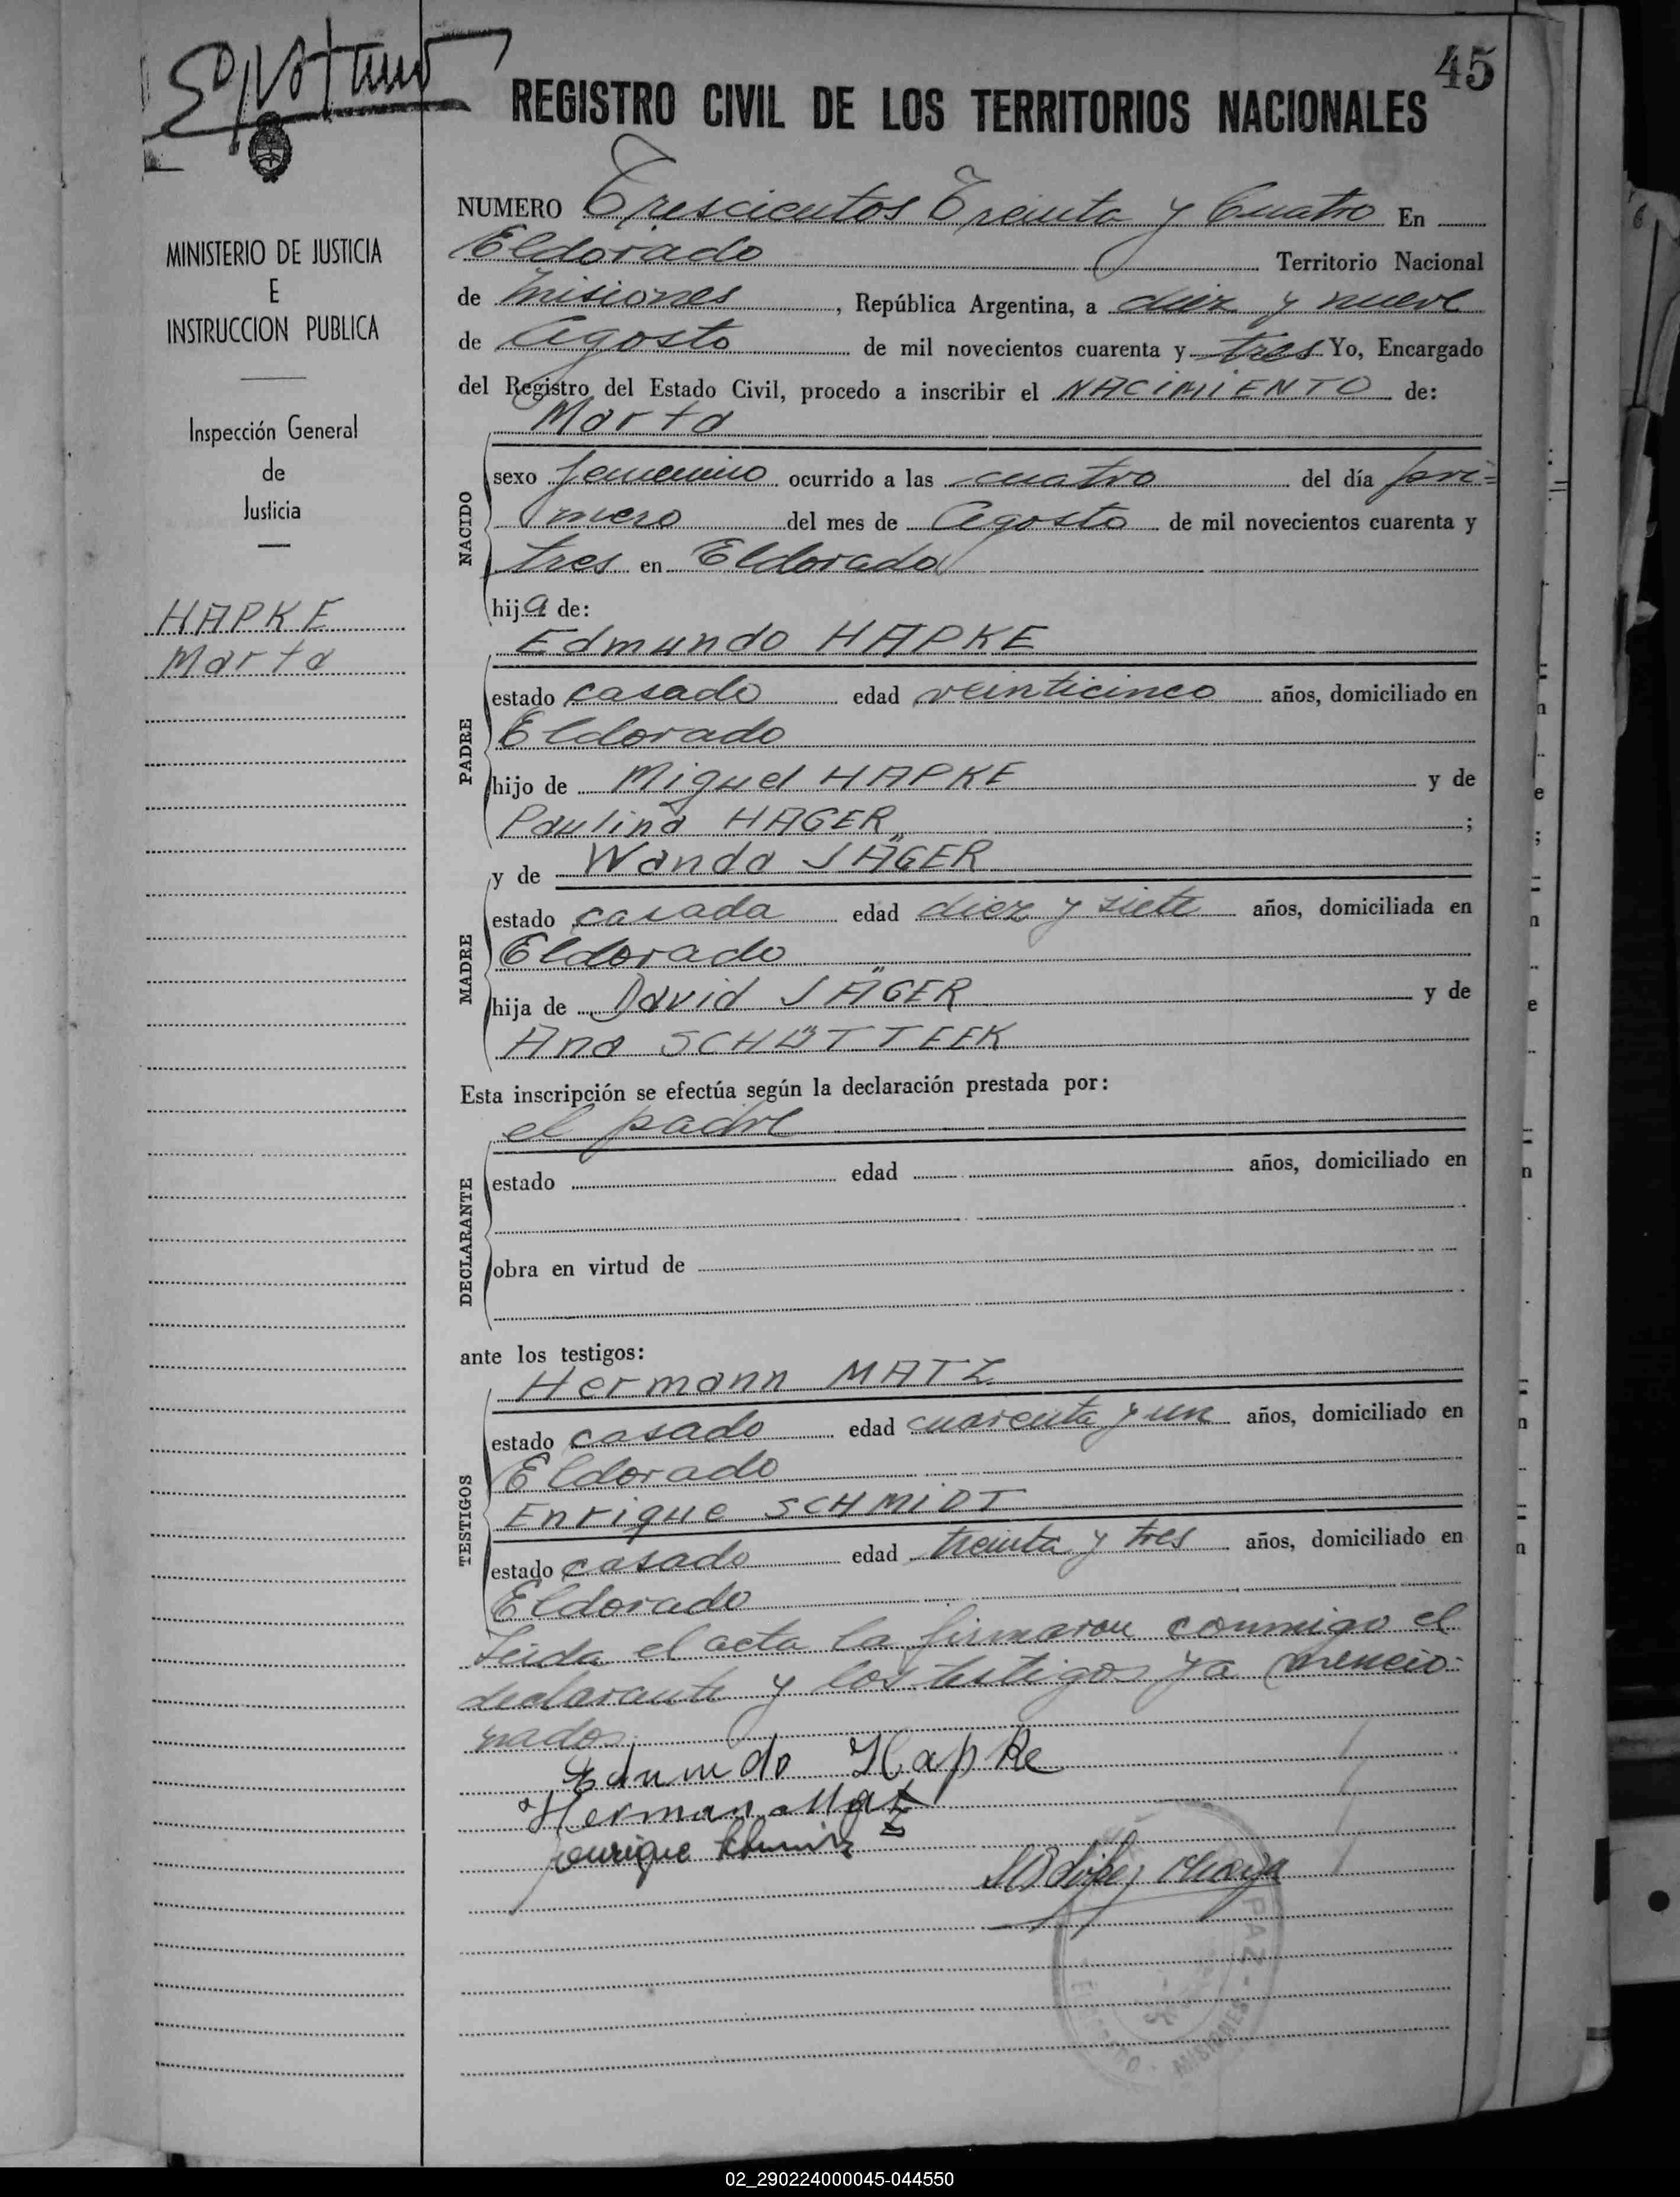 45
REGISTRO CIVIL DE LOS TERRITORIOS NACIONALES
MINISTERIO DE JUSTICIA
E
INSTRUCCION PUBLICA
Inspección General
de
Justicia
HAPKE
Marta
NUMERO Trescientos Treinta y Cuatro En
Eldorado Territorio Nacional
de Misiones, República Argentina, a diez y nueve
de Agosto de mil novecientos cuarenta y tres Yo, Encargado
del Registro del Estado Civil, procedo a inscribir el NACIMIENTO de:
Marta
NACIDO
sexo femenino ocurrido a las cuatro del día pri=
mero del mes de Agosto de mil novecientos cuarenta y
tres en Eldorado
hija de:
Edmundo HAPKE
PADRE
estado casado edad veinticinco años, domiciliado en
Eldorado
hijo de Miguel HAPKE y de
Paulina HAGER ;
y de Wanda JÄGER
MADRE
estado casada edad diez y siete años, domiciliada en
Eldorado
hija de David JÄGER y de
Ana
Esta inscripción se efectúa según la declaración prestada por:
el padre
DECLARANTE
estado edad años, domiciliado en
obra en virtud de
ante los testigos:
Hermann MATZ
TESTIGOS
estado casado edad cuarenta y un años, domiciliado en
Eldorado
Enrique SCHMIDT
estado casado edad treinta y tres años, domiciliado en
Eldorado
Leida el acta la firmaron conmigo el
declarante y los testigos ya mencio-
nados.
Edmundo Hapke
Herman Matz
Enrique
PAZ -
MISIONES
02_290224000045-044550